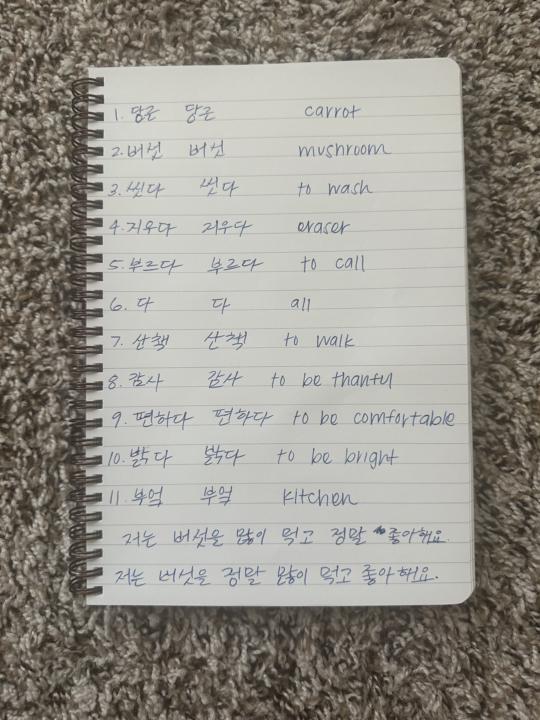 1. 당근 당근 carrot
2. 버섯 버섯 mushroom
3. 씻다 씻다 to wash
4. 지우다 지우다 eraser
5. 부르다 부르다 to call
6. 다 다 all
7. 산책 산책 to walk
8. 감사 감사 to be thanful
9. 편하다 편하다 to be comfortable
10. 밝다 밝다 to be bright
11. 부엌 부엌 kitchen
저는 버섯을 많이 먹고 정말 좋아해요.
저는 버섯을 정말 많이 먹고 좋아해요.